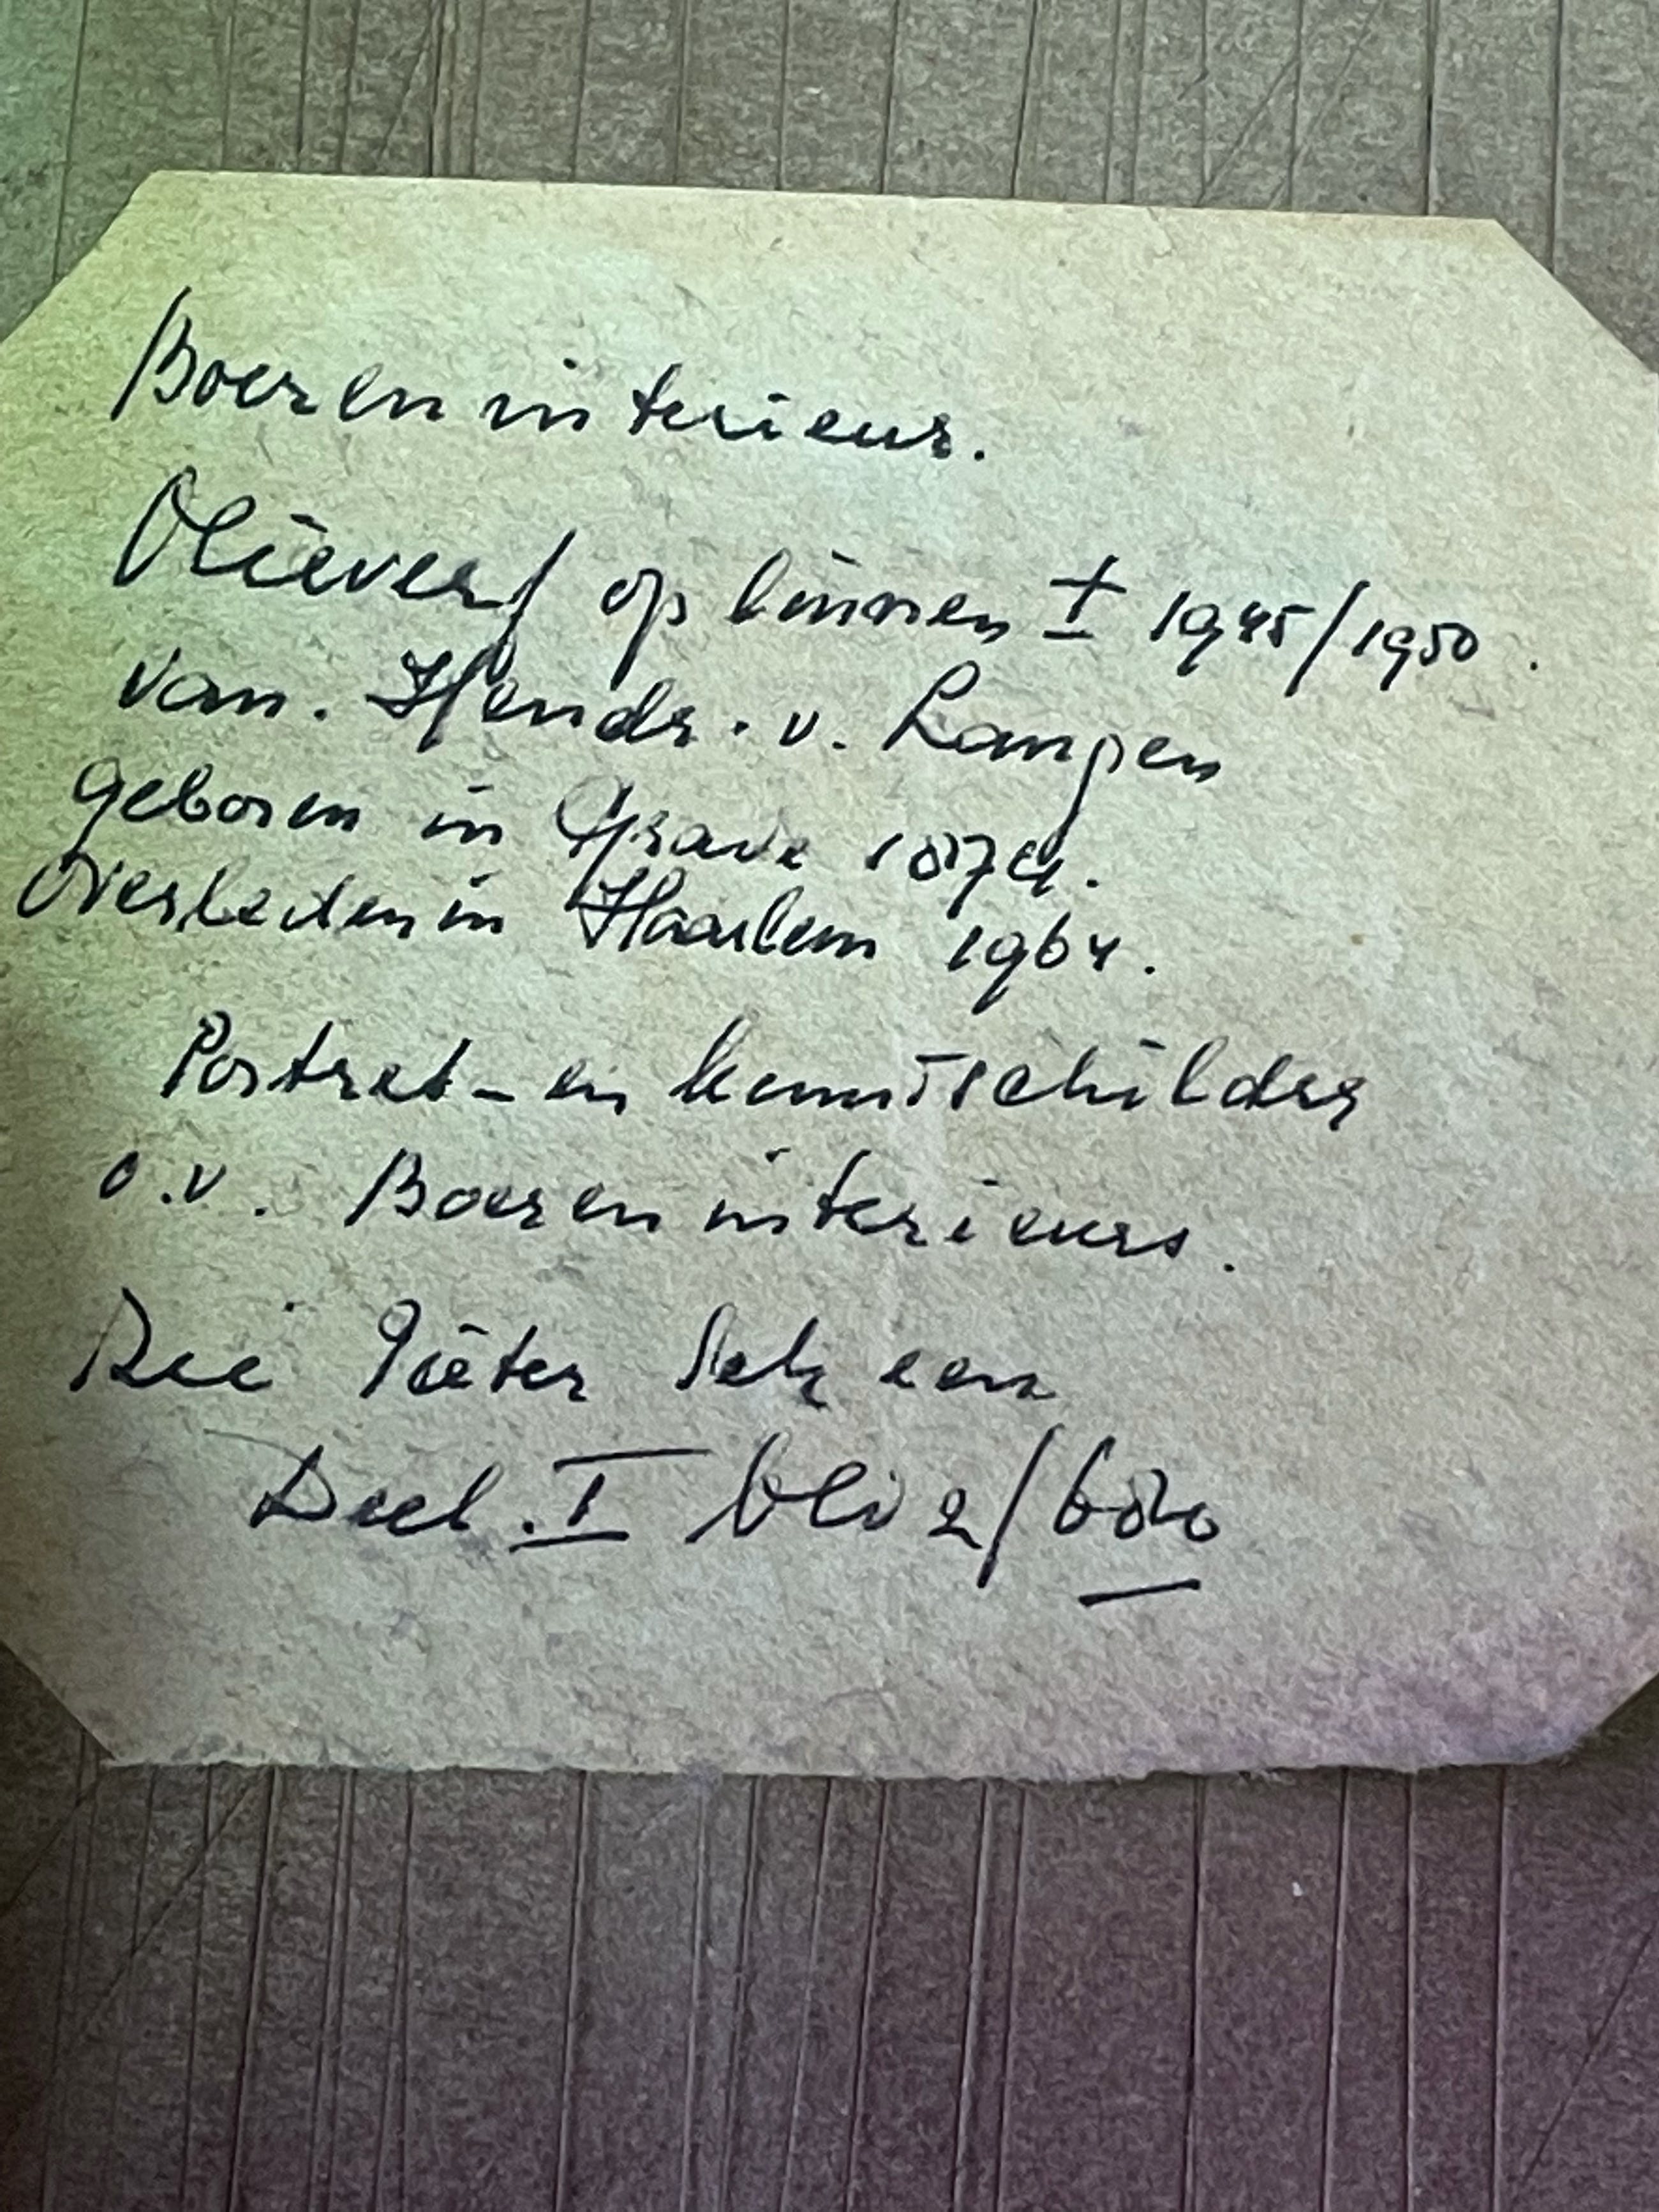 Boereninterieur.
Olieverf op linnen ± 1945/1950.
van. Hendr. v. Langen
geboren in Grave 1874.
Overleden in Haarlem 1964.
Portret- en kunstschilder
o.v. Boereninterieurs.
Zie Pieter Scheen
Deel. I blz /680